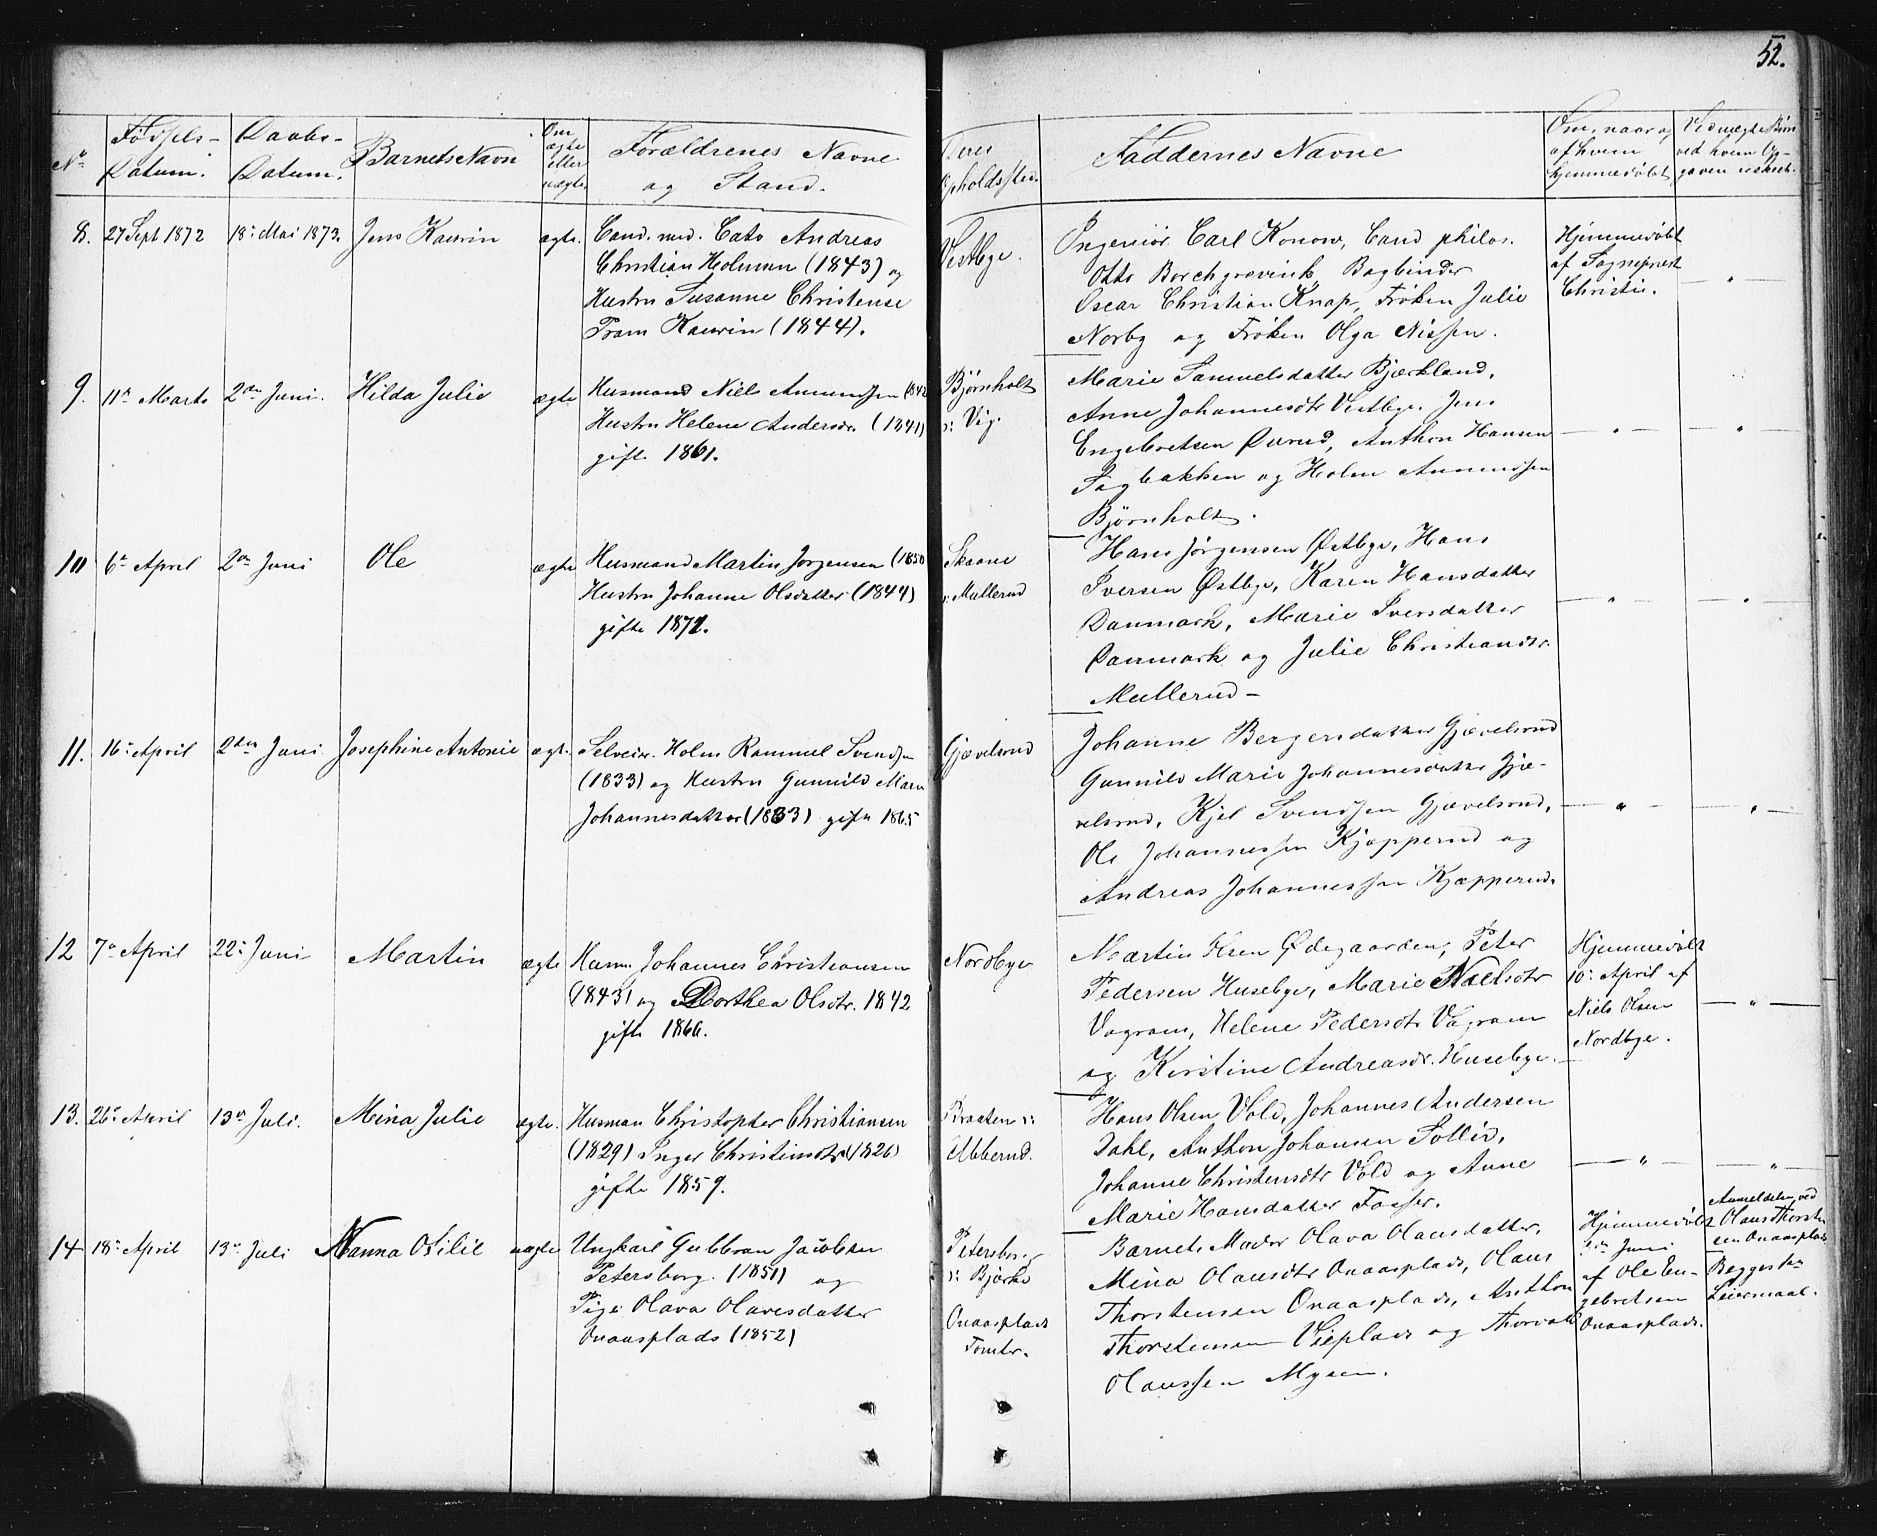 52.
No
Fødsels-
Datum.
Daabs-
Datum.
Barnets Navn
Om
ægte
eller
uægte.
Forældrenes Navne
og Stand.
Deres
Opholdssted.
Faddernes Navne
Om, naar og
af hvem
hjemmedøbt
Ved uægte Børn
ved hvem Op-
gaven er skeet.
8. 27 Sept 1872 18: Mai 1873. Jens Kaurin ægte.
Cand. med. Cato Andreas
Christian Holmsen (1843) og
Hustru Susanne Christense
Pram Kaurin (1844).
Vestbye.
Ingeniør Carl Konow, Cand philos.
Otto Borchgrevink, Bogbinder
Oscar Christian Knap, Frøken Julie
Norby og Frøken Olga Nissen.
Hjemmedøbt
af Sogneprest
Christie.
"
9. 11te Marts 2den Juni. Hilda Julie ægte
Husmand Niels Amundsen (1842
Hustru Helene Andersdr. (1841)
gifte 1861.
Bjørnholt
v: Vig.
Marie Samuelsdatter Bjærkland,
Anne Johannesdtr Vestbye, Jens
Engebretsen Durud, Anthon Hansen
Sagbakken og Holm Amundsen
Bjørnholt.
" "
10 6te April 2den Juni Ole ægte
Husmand Martin Jørgensen (1850
Hustru Johanne Olsdatter (1844)
gifte 1872.
Skaane
v: Mullerud
Hans Jørgensen Østbye, Hans
Iversen Østbye, Karen Hansdatter
Danmark, Marie Iversdatter
Danmark og Julie Christiansdtr.
Mullerud -
" "
11. 16: April 2den Juni Josephine Antonie ægte.
Selveier Holm Rommel Svendsen
(1833) og Hustru Gunnild Marie
Johannesdatter (1833) gifte 1865
Gjævelsrud
Johanne Bergersdatter Gjævelsrud
Gunnild Marie Johannesdatter Gjæ-
velsrud, Kjel Svendsen Gjævelsrud,
Ole Johannessen Kjæpperud og
Andreas Johannessen Kjæpperud.
" "
12 7de April 22: Juni Martin ægte
Husm. Johannes Christiansen
(1843) og Dorthea Olsdtr. 1842
gifte 1866.
Nordbye
Martin Ihren Ødegaarden, Peter
Pedersen Husebye, Marie Noelsdtr
Vagram, Helene Pedersdtr Vagram
og Kirstine Andreasdr. Husebye.
Hjemmedøbt
10: April af
Niels Olsen
Nordbye.
"
13. 26de April 13de Juli. Mina Julie ægte.
Husman Christopher Christiansen
(1829) Inger Christiansdtr (1826)
gifte 1859.
Braaten v:
Abberud.
Hans Olsen Vold, Johannes Andersen
Dahl, Anthon Johansen Sollid,
Johanne Christensdtr Vold og Anne
Marie Hansdatter Fosser.
" "
14 18: April 13de Juli Nanna Otilie uægte
Ungkarl Gulbran Jacobsen
Petersborg. (1851) og
Pige Olava Olavesdatter
Onaasplads (1852)
Petersborg
v: Bjerke
Onaasplads
Tomter.
Barnets Moder Olava Olausdatter,
Mina Olausdtr Onaasplads, Olaus
Thorstensen Onaasplads, Anthon
Thorstensen Vieplads og Thorvald
Olaussen Mysen.
Hjemmedøbt
Juni
af Ole En-
gebretsen
Onaasplads.
Anmeldelse ved
Olaus Thorsten-
sen Onaasplads
Begges 1ste
Leiermaal.